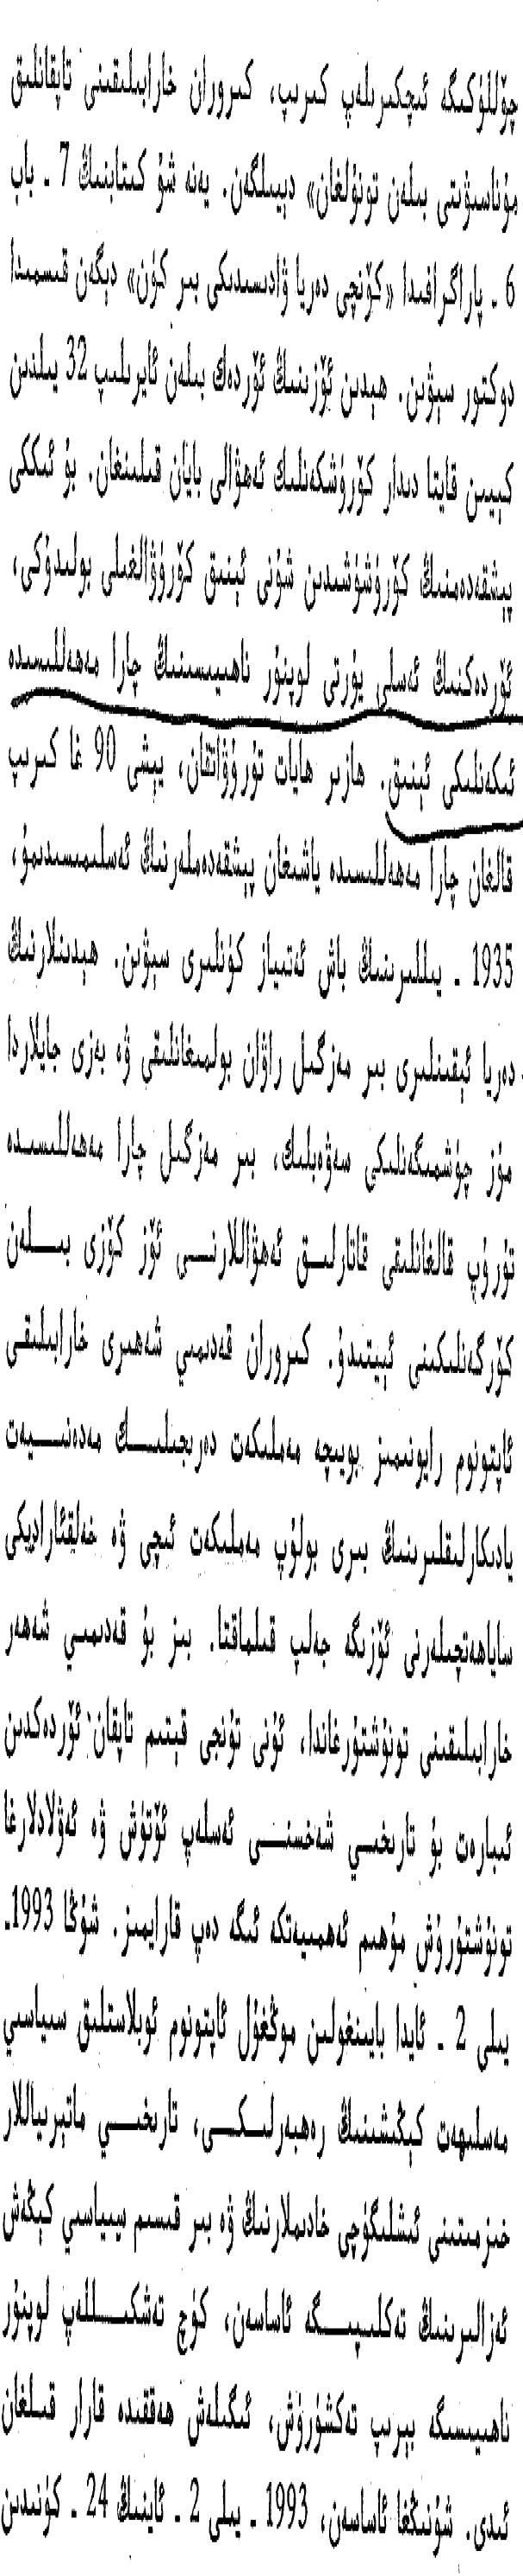 چۆللۈككە ئىچكىرىلەپ كىرىپ، كىروران خارابىلىقىنى تاپقانلىق
مۇناسىۋىتى بىلەن تونۇلغان» دېيىلگەن. يەنە شۇ كىتابنىڭ 7 ـ باپ
6 ـ پاراگرافىدا «كۆنچى دەريا ۋادىسىدىكى بىر كۈن» دېگەن قىسمىدا
دوكتور سېۋىن. ھېدىن ئۆزىنىڭ ئۆردەك بىلەن ئايرىلىپ 32 يىلدىن
كېيىن قايتا دىدار كۆرۈشكەنلىك ئەھۋالى بايان قىلىنغان. بۇ ئىككى
پېشقەدەمنىڭ كۆرۈشۈشىدىن شۇنى ئېنىق كۆرۈۋالغىلى بولىدۇكى،
ئۆردەكنىڭ ئەسلى يۇرتى لوپنۇر ناھىيىسىنىڭ چارا مەھەللىسىدە
ئىكەنلىكى ئېنىق. ھازىر ھايات تۇرۇۋاتقان، يېشى 90 غا كىرىپ
قالغان چارا مەھەللىسىدە ياشىغان پېشقەدەملەرنىڭ ئەسلىمىسىدىمۇ،
1935 ـ يىللىرىنىڭ باش ئەتىياز كۈنلىرى سېۋىن. ھېدىنلارنىڭ
دەريا ئېقىنلىرى بىر مەزگىل راۋان بولمىغانلىقى ۋە بەزى جايلاردا
مۇز چۈشمىگەنلىكى سەۋەبلىك، بىر مەزگىل چارا مەھەللىسىدە
تۇرۇپ قالغانلىقى قاتارلىق ئەھۋاللارنى ئۆز كۆزى بىلەن
كۆرگەنلىكىنى ئېيتىدۇ. كىروران قەدىمىي شەھىرى خارابىلىقى
ئاپتونوم رايونىمىز بويىچە مەملىكەت دەرىجىلىك مەدەنىيەت
يادىكارلىقلىرىنىڭ بىرى بولۇپ مەملىكەت ئىچى ۋە خەلقئارادىكى
ساياھەتچىلەرنى ئۆزىگە جەلپ قىلماقتا. بىز بۇ قەدىمىي شەھەر
خارابىلىقىنى تونۇشتۇرغاندا، ئۇنى تۇنجى قېتىم تاپقان ئۆردەكدىن
ئىبارەت بۇ تارىخىي شەخسنى ئەسلەپ ئۆتۈش ۋە ئەۋلادلارغا
تونۇشتۇرۇش مۇھىم ئەھمىيەتكە ئىگە دەپ قارايمىز. شۇڭا 1993ـ
يىلى 2 ـ ئايدا بايىنغولىن موڭغۇل ئاپتونوم ئوبلاستلىق سىياسىي
مەسلىھەت كېڭىشىنىڭ رەھبەرلىكى، تارىخىي ماتېرىياللار
خىزمىتىنى ئىشلىگۈچى خادىملارنىڭ ۋە بىر قىسىم سىياسىي كېڭەش
ئەزالىرىنىڭ تەكلىپىگە ئاساسەن، كۈچ تەشكىللەپ لوپنۇر
ناھىيىسىگە بېرىپ تەكشۈرۈش، ئىگىلەش ھەققىدە قارار قىلغان
ئىدى. شۇنىڭغا ئاساسەن، 1993 ـ يىلى 2 ـ ئاينىڭ 24 ـ كۈنىدىن